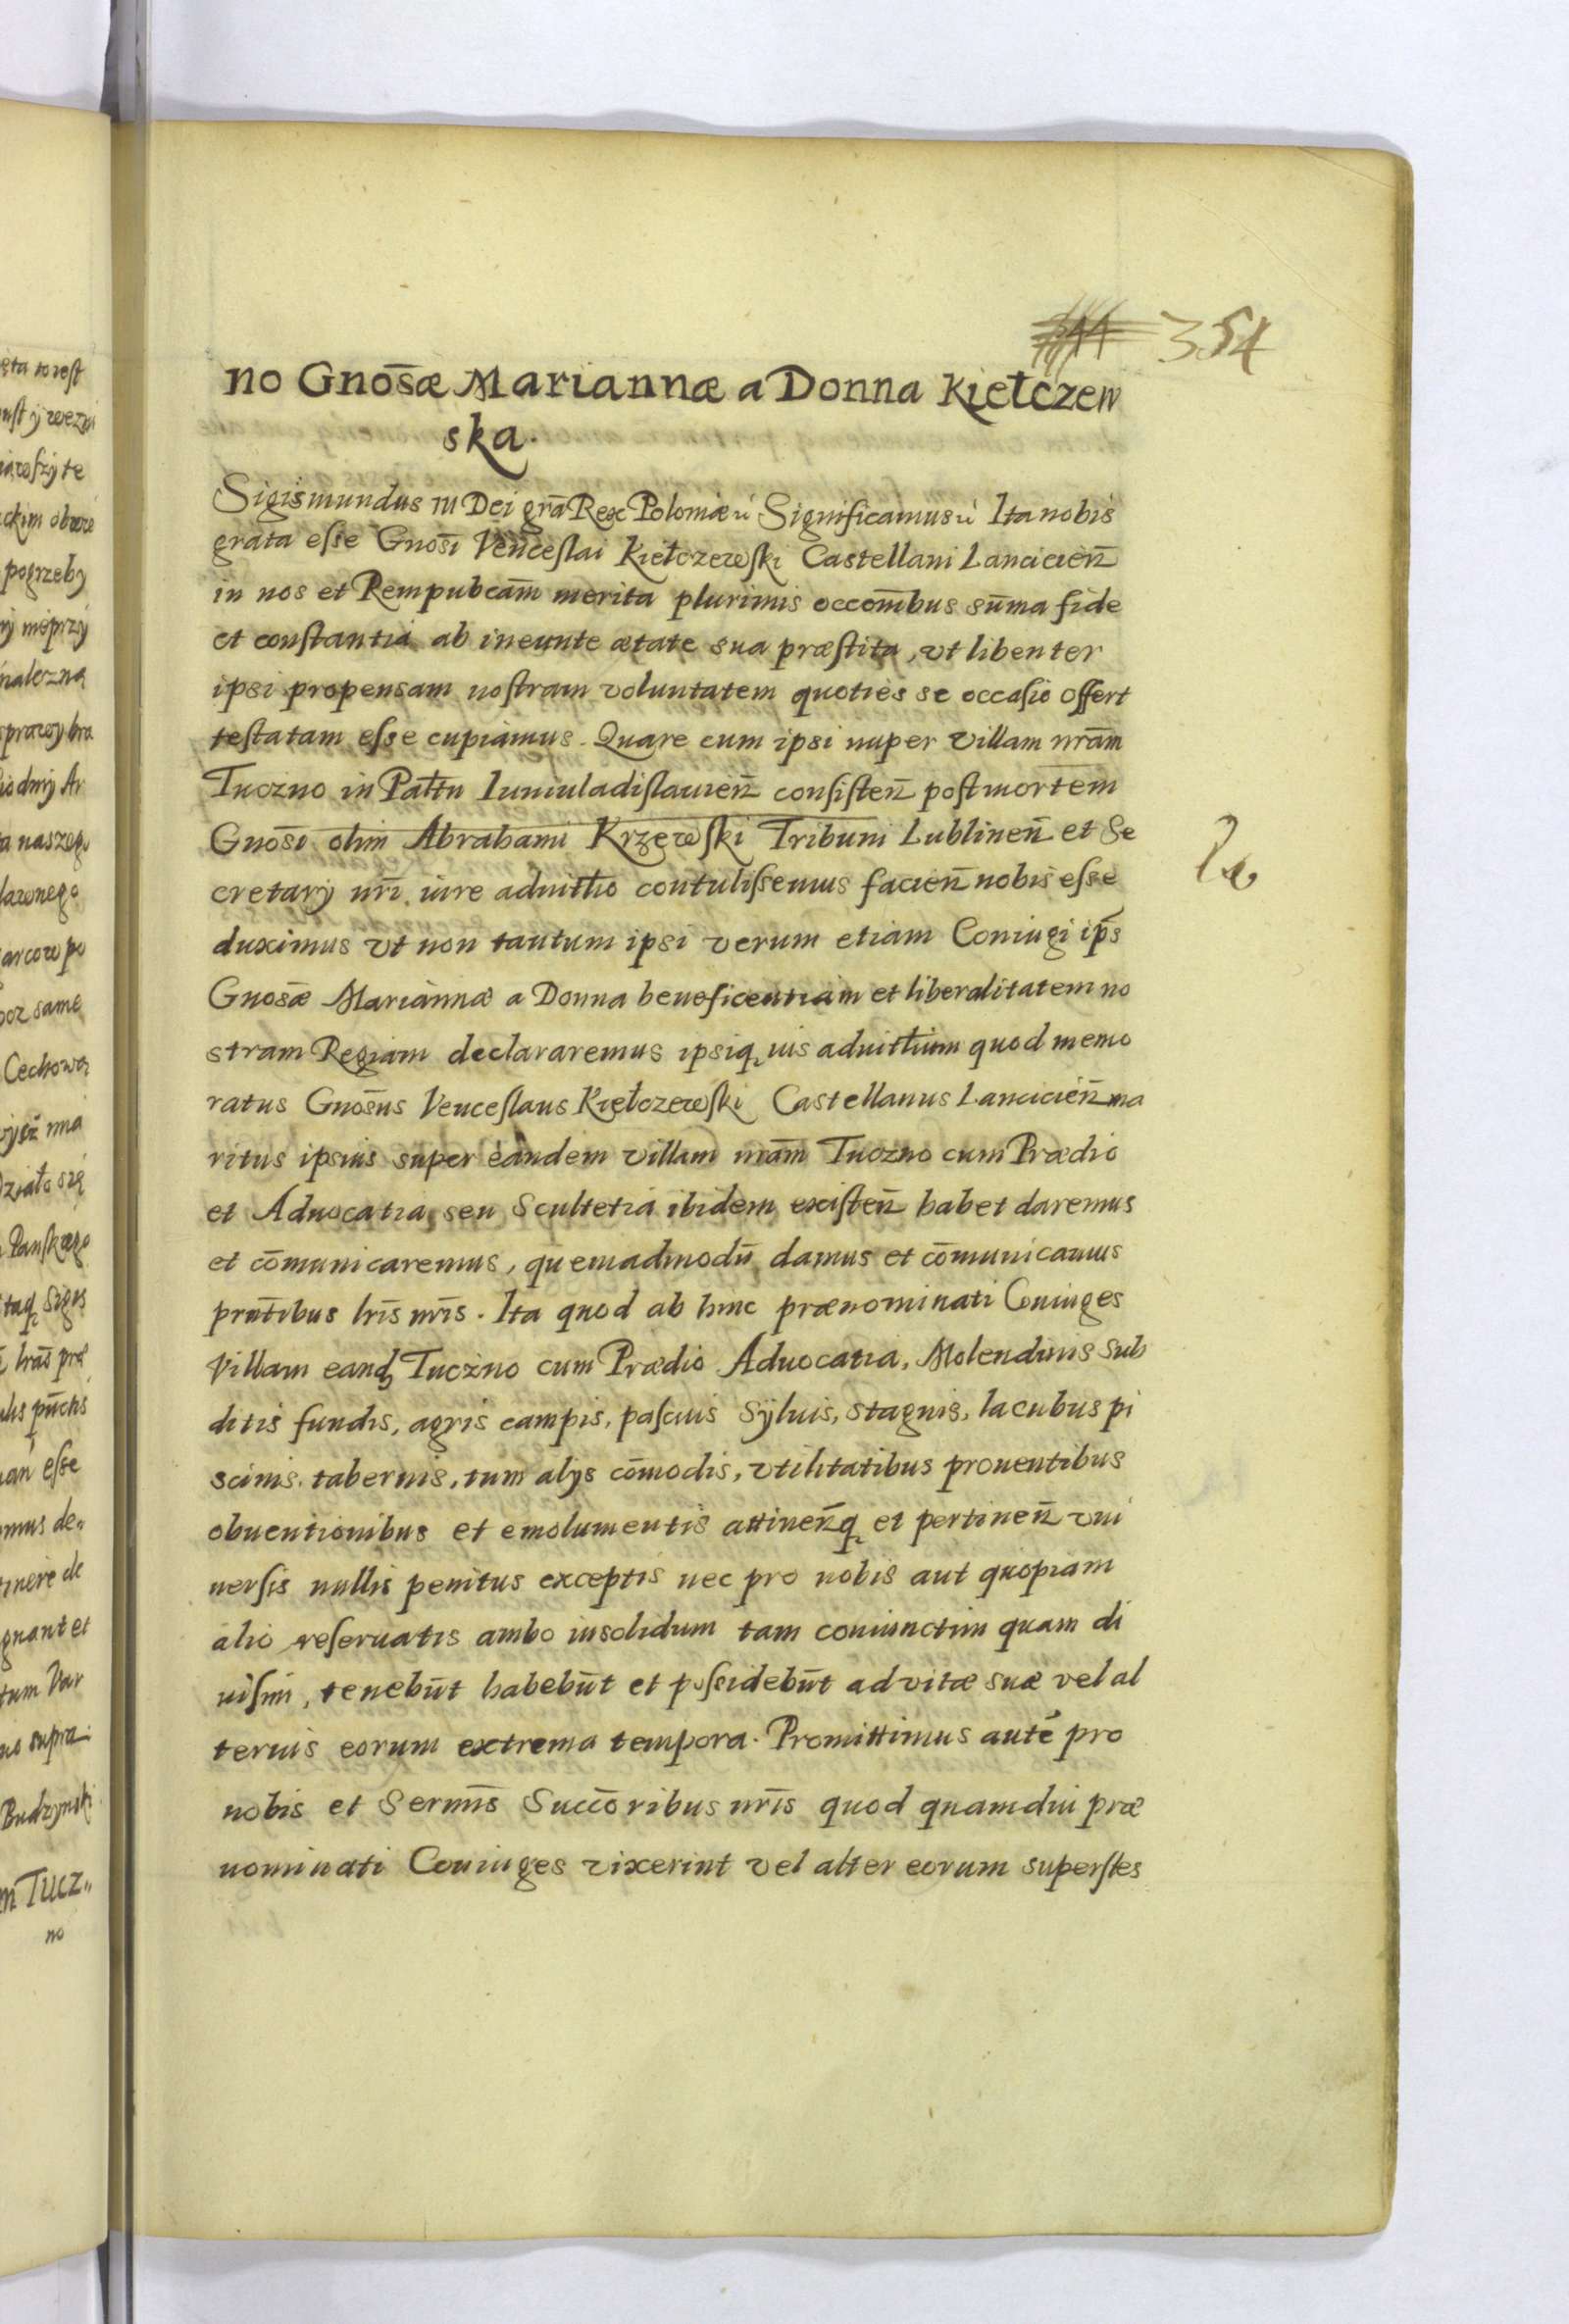 354
no Gnos̄æ Mariannæ a Donna Kiełczew
ska.
Sigismundus III Dei grā Rex Poloniæ Significamus Ita nobis
grata esse Gnosī Venceslai Kiełczewski Castellani Lancicien̄
in nos et Rempubcam̄ merita plurimis occom̄bus sum̄a fide
et constantia ab ineunte ætate sua præstita, vt libenter
ipsi propensam nostram voluntatem quoties se occasio offert
testatam esse cupiamus. Quare cum ipsi nuper villam nram̄
Tuczno in Pałtu Iuniuladislauien̄ consisten̄ post mortem
Gnosī olim Abrahami Krzewski Tribuni Lublinen̄ et Se
cretarij nrī iure aduitłio contulissemus facien̄ nobis esse
duximus vt non tantum ipsi verum etiam Coniugi ip̄s
Gnosǣ Mariannæ a Donna beneficentiam et liberalitatem no
stram Regiam declararemus ipsiq̨ ius aduitłium quod memo
ratus Gnos̄us Venceslaus Kiełczewski Castellanus Lancicien̄ ma
ritus ipsius super eandem villam nram̄ Tuczno cum Prædio
et Aduocatia seu Scultetia ibidem existen̄ habet daremus
et cōmunicaremus, quemadmodū damus et cōmunicamus
prn̄tibus lrīs nrīs. Ita quod ab hinc prænominati Coniuges
Villam eandꝫ Tuczno cum Prædio Aduocatia, Molendinis Sub
ditis fundis, agris campis, pascuis Syluis, stagnis, lacubus pi
scinis, tabernis, tum alys cōmodis, vtilitatibus prouentibus
obuentionibus et emolumentis attinen̄q̨ et pertinen̄ vni
uersis nullis penitus exceptis nec pro nobis aut quopiam
alio reseruatis ambo insolidum tam coniunctim quam di
uisim, tenebūt habebūt et possidebūt ad vitæ suæ vel al
terius eorum extrema tempora. Promittimus autē pro
nobis et Sermīs Succōribus nrīs quod quamdiu præ
nominati Coniuges vixerint vel alter eorum superstes